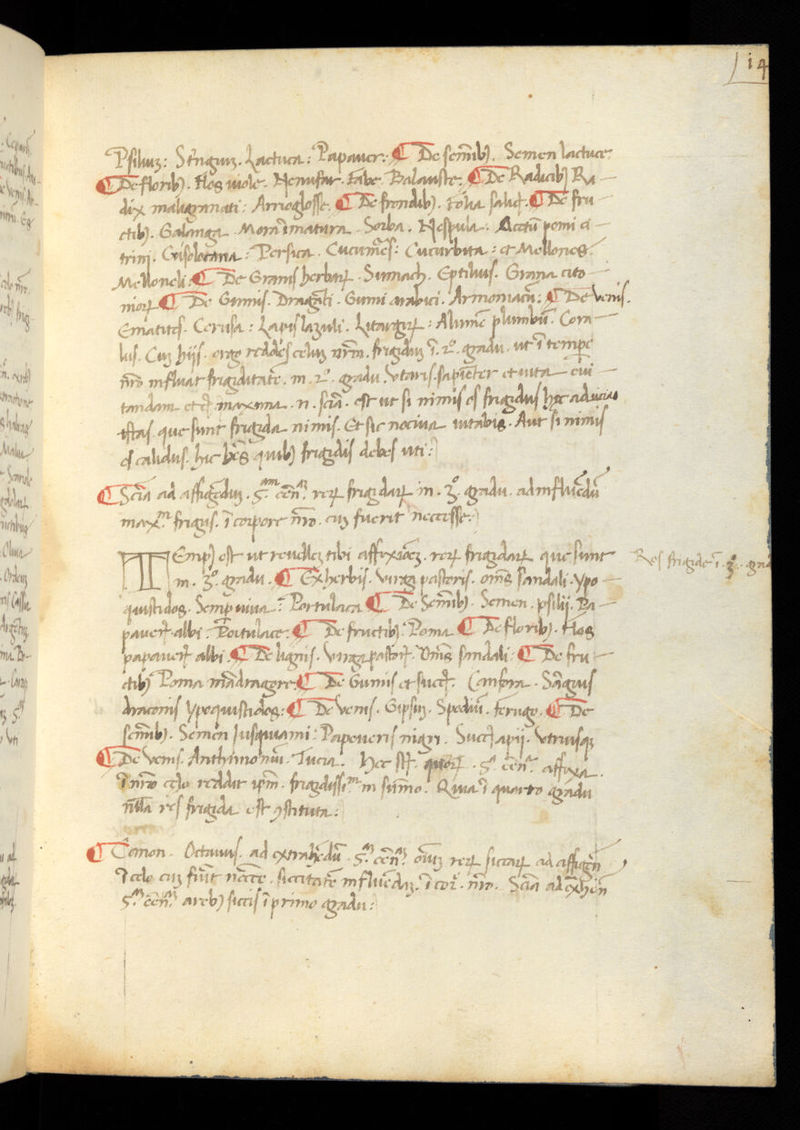 14
Psiliuz: Strigiuz. Lactuca: Papauer: ¶ De seminibꝫ. Semen lactuce
¶ De floribꝫ. flos uiole. Nenufar. fabe. Balaustie. ¶ De Radicibꝫ Ra-
dix maligranati: Arnoglosse. ¶ De frondibꝫ. folia salicꝭ. ¶ De fru
ctibꝫ. Galanga. Mora īmatura. Sorba. Nespula. Acetū pomi ci
trini. Persica. Cucumēs: Cucurbita: et Mellones.
Melloneli. ¶ De Granis herbaꝝ. Sumach. Eptiluis. Grana cito
nioꝝ ¶ De Gumis. Draganti. Gumi arabici. Armoniacū: ¶ De Venis.
Ematites. Cerusa: Lapis lazuli. Litargiꝝ: Alumē plumbeū. Cora
lus. Cuz hijs. ergo reddes celuz nrm. frigiduz ī. 2º. gradu. ut ī tempe
nr̄o influat frigiditatē. in. 2º. gradu. Utaris. sapiēter et uita
tandam maxima. n. scīa. est ut si nimis es frigidus hec
istas. que sunt frigida nimis. Et sic nociua uitabis. Aut si nimis
es calidus. hic hēs quibꝫ frigidis debes uti:
¶ Scīa ad affigēduz. rerꝝ frigidaꝝ in. 3º. gradu. ad influēdū
maxm̄. frigus. ī corpore nr̄o. cuz fuerit necesse.
Tempꝰ est ut reuellez tibi affixiōēz. rerꝝ frigidaꝝ que sunt
Res frigide ī. 3º. grad
in. 3º. gradu. ¶ Ex herbis. Virga pastoris. oms̄ sandali. ypo
quistidos. Semp uiua: Portulaca ¶ De Semībꝫ. Semen. psilij. Pa
paueris albi. Portulace: ¶ De fructibꝫ: Poma ¶ De floribꝫ. flos
papaueris albi. ¶ De lignis. Virga pastorꝭ. Oms̄ sandali: ¶ De fru
ctibꝫ Poma mādragore. ¶ De Gumis et succꝭ. Canfora. Sāguis
draconis ypoquistidos: ¶ De Venis. Gipsuz. Spodiū. ferugo. ¶ De
semībꝫ. Semen Jusquiami: Papaueris nigri. Succꝭ apij. Utriusqꝫ
¶ De Venis. Anthimoniū. Tucia. Hec sūt. quoꝝ. affixa.
ī nr̄o celo reddit ipm̄. frigidissimū in sūmo. Quia ī quarto gradu
nulla res frigida est ꝯstituta:
¶ Canon. Octauus. ad extrahēdū. oīuz rerꝝ siccaꝝ ad affigēd
ī celo cuz fuīt necēe. siccitatē influēdaz. ī cor. nr̄o. Scīa ad
a rebꝫ siccis ī primo gradu: